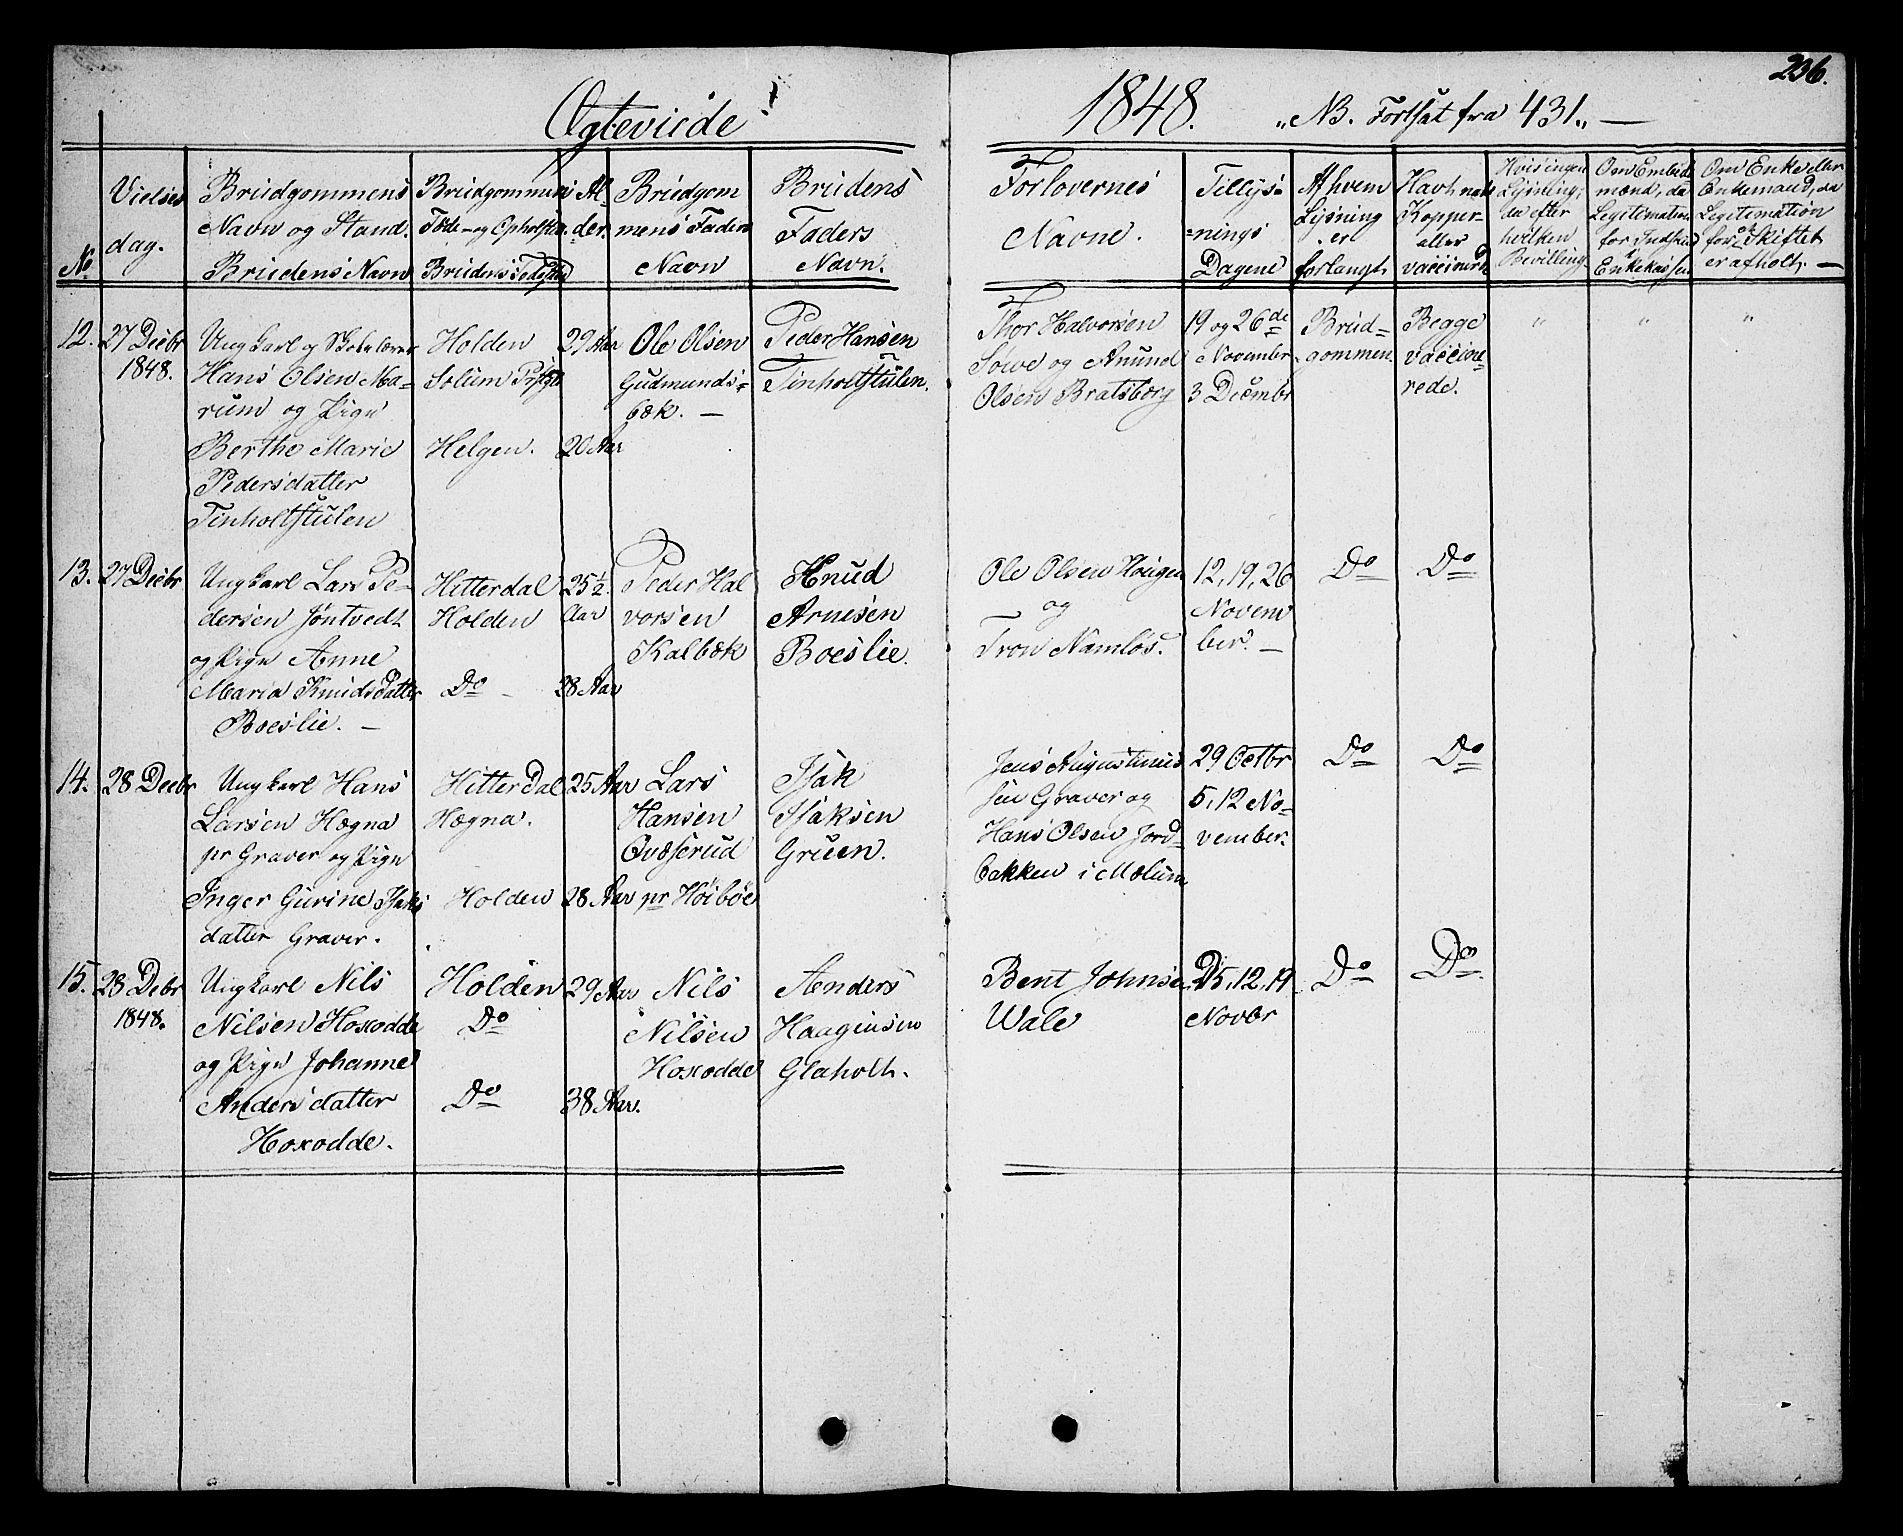 236.
Ægteviede
1848. „NB. Fortsat fra 431„ —
No
Vielses
dag.
Brudgommens
Navn og Stand.
Brudens Navn
Brudgommens
Føde- og Opholdsst.
Brudens Fødested
Al-
der.
Brudgom
mens Faders
Navn
Brudens
Faders
Navn.
Forlovernes
Navne.
Tillys-
nings
Dagene
Af hvem
Lysning
er
forlangt
Havt nat.
Kopper
eller
vaccinered
Hvis ingen
Lysning,
da efter
hvilken
Bevilling
Om Embeds
mænd, da
Legitimation
for Indskud
i Enkekassen
Om Enke eller
Enkemand, da
Legitimation
for at Skiftet
er afholt. —
12.
27 Decbr
1848.
Ungkarl og Skolelærer
Hans Olsen Ma-
rum og Pige
Berthe Marie
Pedersdatter
Tinholtstulen
Holden
Solum Prstgd
Helgen.
29 Aar
20 Aar
Ole Olsen
Gudmunds-
bæk. —
Peder Hansen
Tinholtstulen.
Thor Halvorsen
Sowe og Anund
Olsen Bratsberg
19 og 26de
November
3 Decembr
Brud-
gommen.
Begge
vaccine-
rede.
"
"
"
13.
27 Decbr
Ungkarl Lars Pe-
dersen Jøntvedt
og Pige Anne
Maria KnudsDatter
Boeslie. —
Hitterdal
Holden
Do -
25½
Aar
38 Aar
Peder Hal
vorsen
Kalbæk
Knud
Arnesen
Boeslie.
Ole Olsen Hougen
og
Tron Namløs.
12, 19, 26
Novem
ber. —
Do
Do
14.
28 Decbr
Ungkarl Hans
Larsen Hægna
pr Graver og Pige
Inger Gurine Isaks
datter Graver.
HitterDal
Hægna.
Holden
25 Aar
28 Aar
Lars
Hansen
Qvæserud
pr Høibøe
Isak
Isaksen
Grueen.
Jens Augustinus
sen Graver og
Hans Olsen Jord-
bakken i Mælum
29 Octbr
5, 12 No-
vember.
Do
Do
15.
28 Debr
1848.
Ungkarl Nils
Nilsen Hoxodde
og Pige Johanne
Andersdatter
Hoxodde.
Holden
Do
Do
29 Aar
38 Aar.
Nils
Nilsen
Hoxodde
Anders
Haagensen
Glaholt.
Bent Johnsen
Wale
5, 12, 19
Novbr
Do
Do